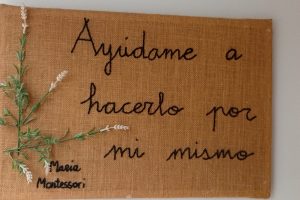 Ayúdame a
hacerlo por
mi mismo
Maria
Montessori